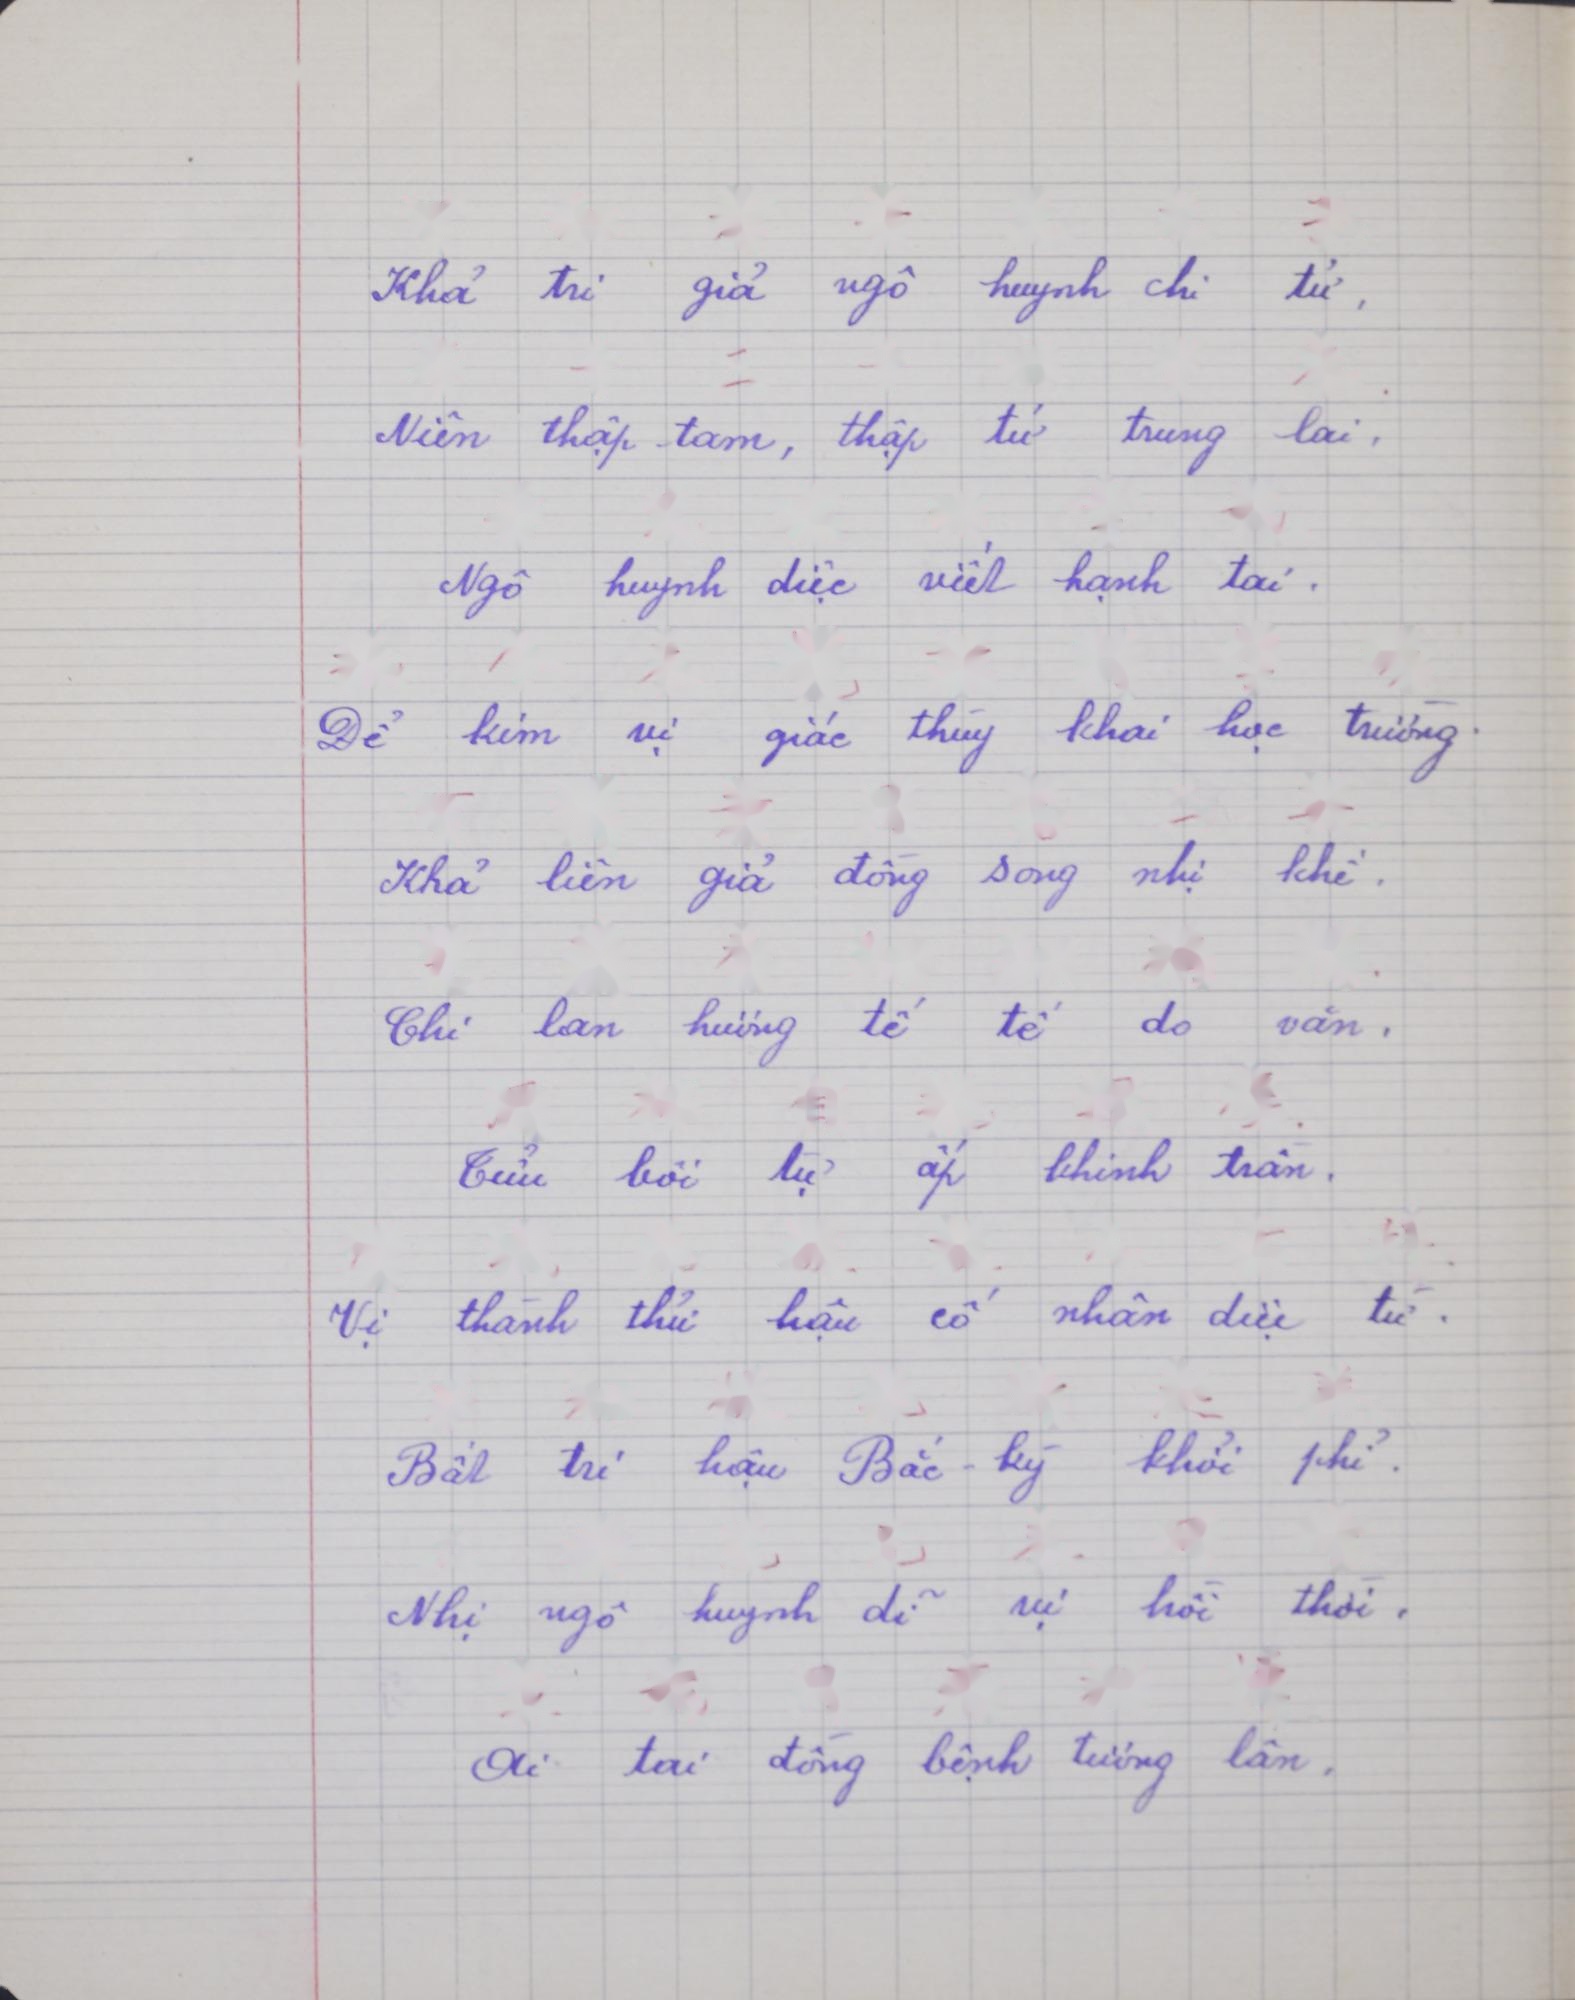 Khả tri giả ngô huynh chi tử,
Niên thập tam, thập tứ trung lai,
Ngô huynh diệc viết hạnh tai.
Để kim vị giác thùy khai học trường.
Khả liên giả đồng song nhị khế.
Chi lan hương tế tế do văn.
Cửu bôi tự ấp khinh trần.
Vị thành thử hậu cố nhân diệc từ.
Bất tri hậu Bắc-kỳ khởi phỉ.
Nhị ngô huynh dĩ vị hồi thời.
Ai tai đồng bệnh tương lân.